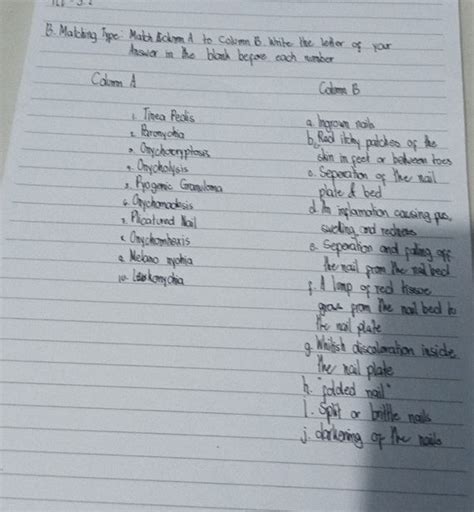 B. Matching Type: Match Column A to Column B. Write the letter of your
Answer in the blank before each number
Column A
1. Tinea Pedis
2. Paronychia
3. Onychocryptosis
4. Onycholysis
5. Pyogenic Granuloma
6. Onychomadesis
7. Plicatured Nail
8. Onychorrhexis
9. Melano nychia
10. Leukonychia
Column B
a. Ingrown nails
b. Red itchy patches of the
skin in feet or between toes
c. Seperation of the nail
plate & bed
d. Im inflamation causing pus,
swelling, and redness
e. Seperation and falling off
the nail from the nail bed
f. A lamp of red tissue
grow from the nail bed to
the nail plate
g. Whitish discoloration inside
the nail plate
h. "folded nail"
I. Split or brittle nails
j. darkening of the nails